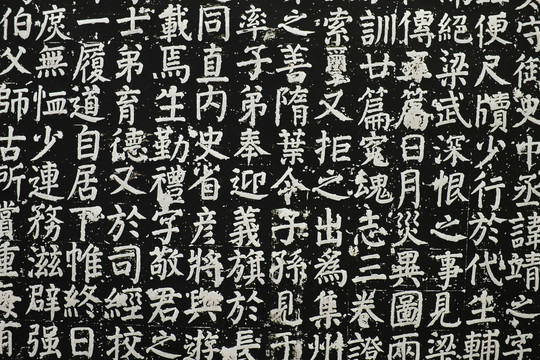 守御史中丞諱靖之字
便尺牘少行於代生輔
絕梁武深恨之事見梁
傳篇日月災異圖兩
訓廿篇冤魂志三卷證
索璽又拒之出爲集州
之善隋葉令子孫見于
率子弟奉迎義旗於長
同直内史省彦將與遊
載焉生勤禮字敬君之
士弟育德又於司經校
一履道自居下帷終日
戾無恤少連務滋辟强
伯父師古所賞重每有